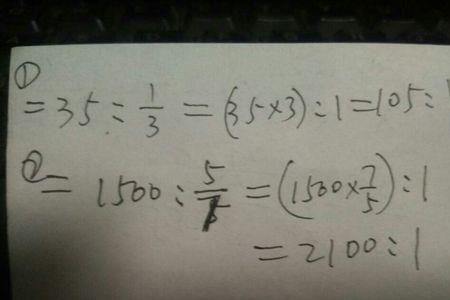 ①
=35:1/3=(35×3):1=105:1
②=1500:5/7=(1500×7/5):1
=2100:1